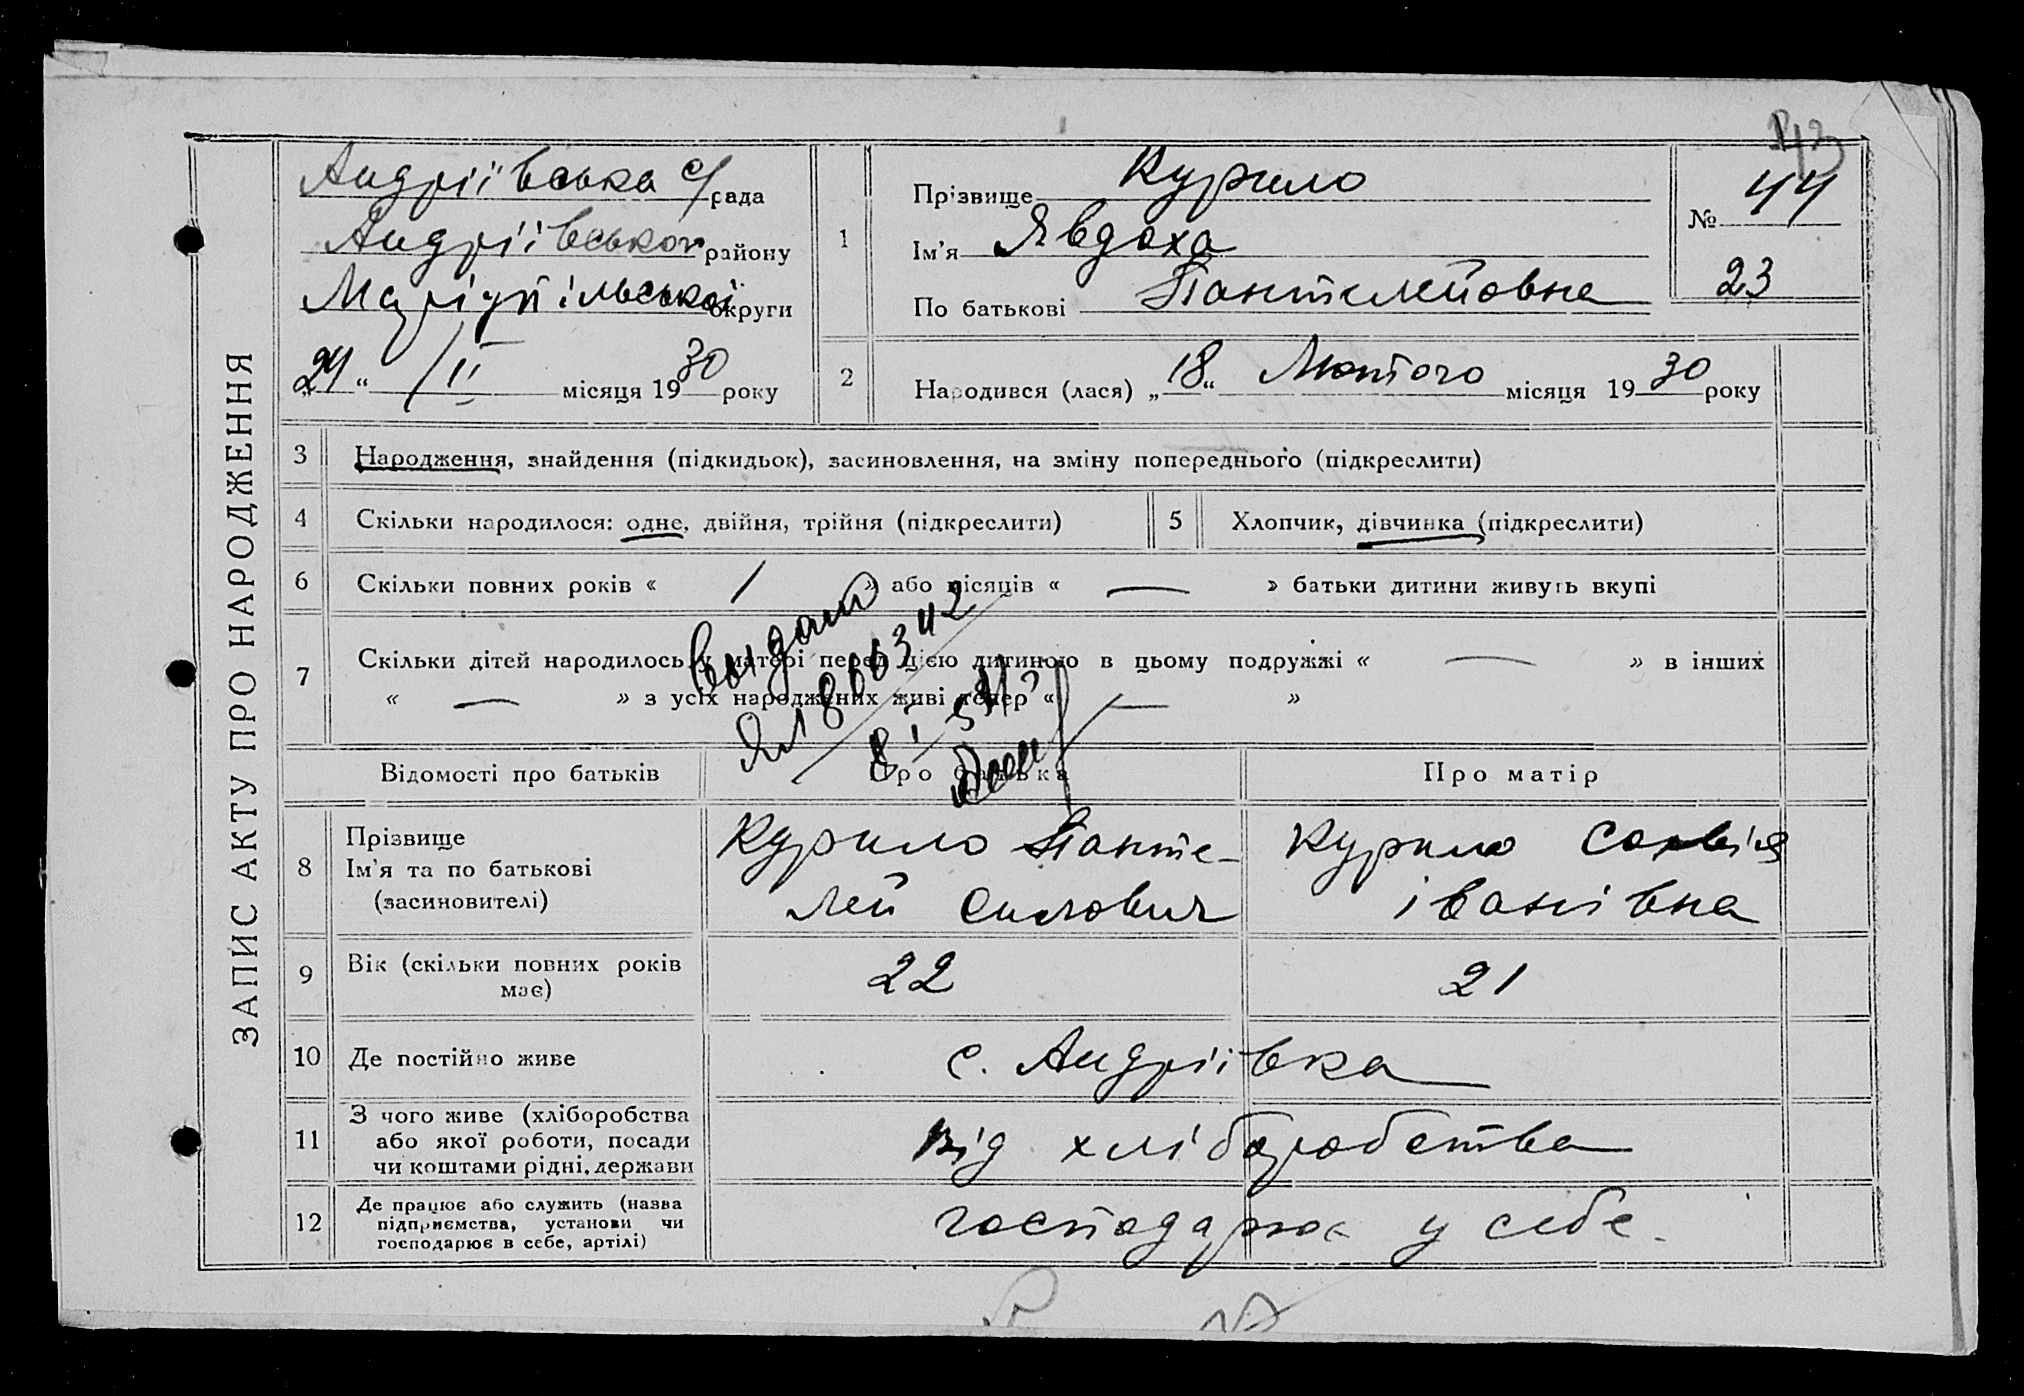 ЗАПИС АКТУ ПРО НАРОДЖЕННЯ
Андріївська с/рада
Андріївського району
Маріупільської округи
„24“ /II місяця 1930 року
1
Прізвище Курило
Ім'я Явдоха
По батькові Пантелейовна
№ 44
23
2
Народився (лася) „18“ Лютого місяця 1930 року
3 Народження, знайдення (підкидьок), засиновлення, на зміну попереднього (підкреслити)
4 Скільки народилося: одне, двійня, трійня (підкреслити)
5 Хлопчик, дівчинка (підкреслити)
6 Скільки повних років « / » або місяців « — » батьки дитини живуть вкупі
7 Скільки дітей народилось у матері перед цією дитиною в цьому подружжі « — » в інших
« — » з усіх народжених живі тепер « — »
Выдано
Відомості про батьків
Про батька
Про матір
8 Прізвище
Ім'я та по батькові
(засиновителі)
Курило Панте-
лей Силович
Курило Софія
Іванівна
9 Вік (скільки повних років
має)
22
21
10 Де постійно живе
с. Андріівка
11 З чого живе (хліборобства
або якої роботи, посади
чи коштами рідні, держави
від хліборобства
12 Де працює або служить (назва
підприємства, установи чи
господарює в себе, артілі)
господарює у себе.